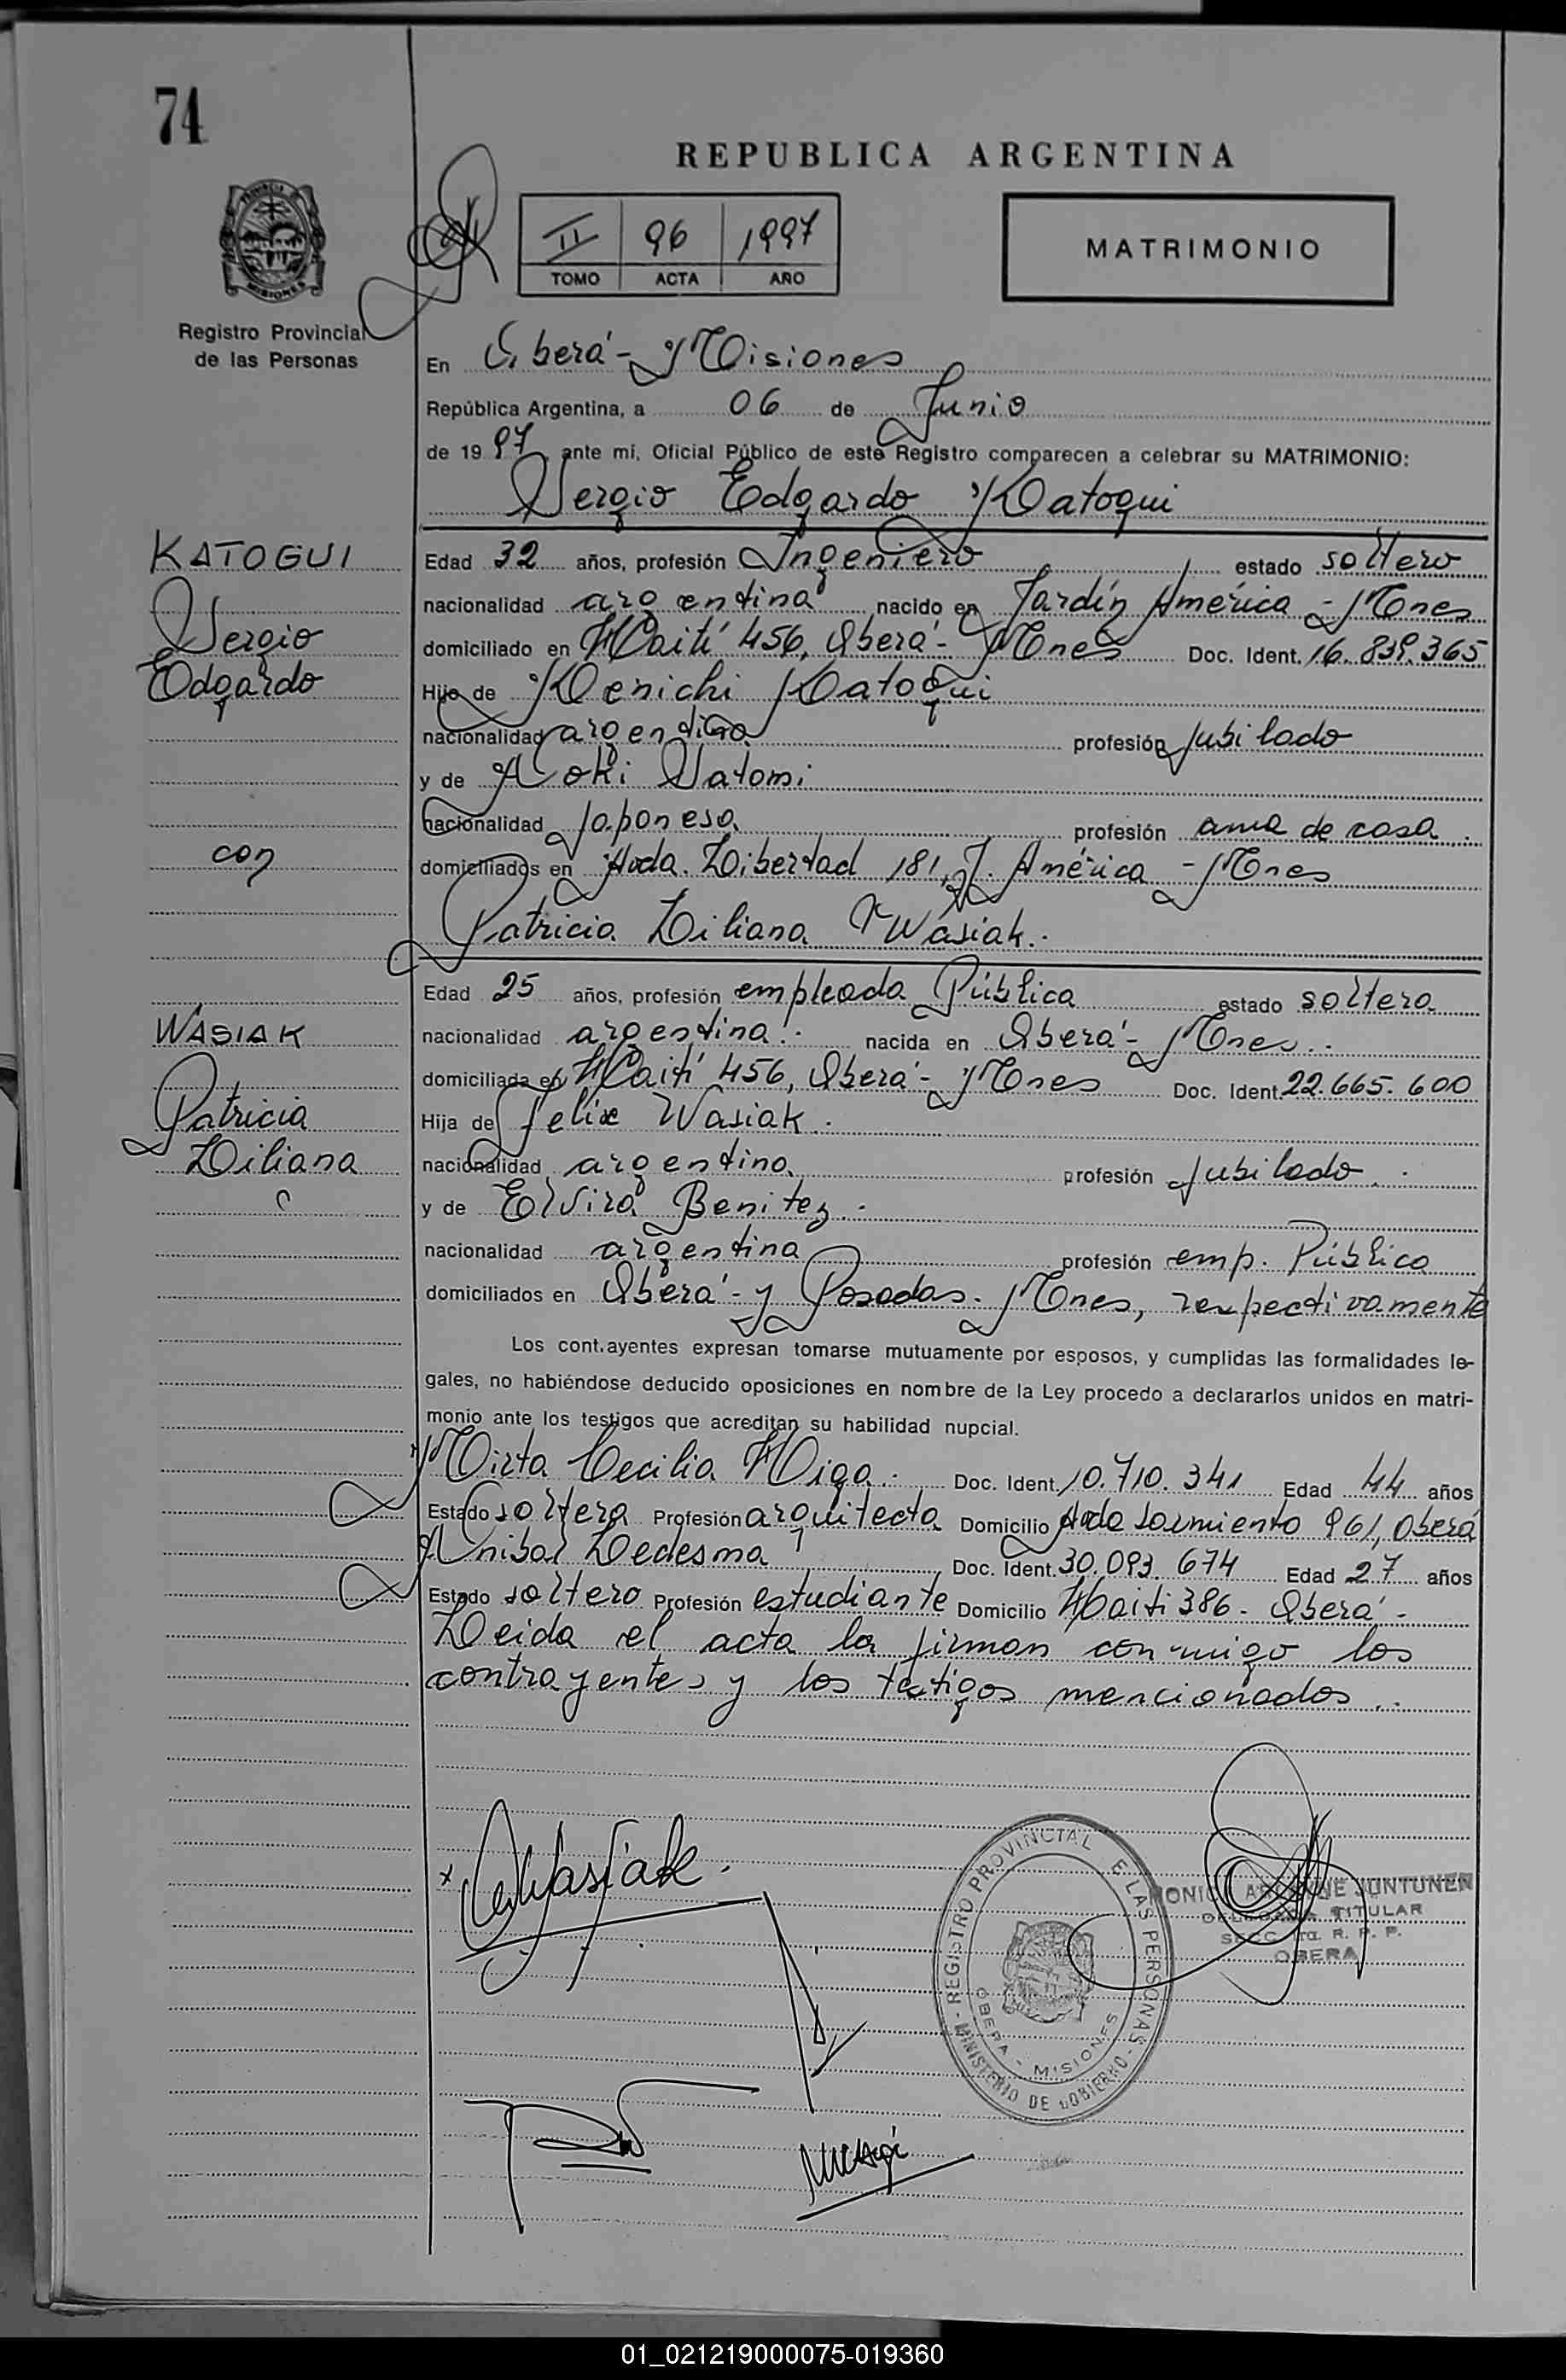 74
REPUBLICA ARGENTINA
II 96 1997
TOMO ACTA AÑO
MATRIMONIO
PROVINCIA DE MISIONES
Registro Provincial
de las Personas
En Oberá - Misiones
República Argentina, a 06 de Junio
de 1997, ante mi, Oficial Público de este Registro comparecen a celebrar su MATRIMONIO:
Sergio Edgardo Katogui
KATOGUI
Sergio
Edgardo
Edad 32 años, profesión Ingeniero estado soltero
nacionalidad argentina nacido en Jardín América - Mnes
domiciliado en Haití 456, Oberá - Mnes Doc. Ident. 16.839.365
Hijo de Kenichi Katogui
nacionalidad argentina profesión Jubilado
y de Aoki Satomi
nacionalidad Japonesa profesión ama de casa.
con
domiciliados en Avda. Libertad 181, J. América - Mnes
Patricia Liliana Wasiak.
WASIAK
Patricia
Liliana
Edad 25 años, profesión empleada Pública estado soltera
nacionalidad argentina. nacida en Oberá - Mnes.
domiciliada en Haití 456, Oberá - Mnes Doc. Ident. 22.665.600
Hija de Felix Wasiak.
nacionalidad argentina profesión Jubilado.
y de Elvira Benitez.
nacionalidad argentina profesión emp. Pública
domiciliados en Oberá - y Posadas - Mnes, respectivamente
Los cont.ayentes expresan tomarse mutuamente por esposos, y cumplidas las formalidades le-
gales, no habiéndose deducido oposiciones en nombre de la Ley procedo a declararlos unidos en matri-
monio ante los testigos que acreditan su habilidad nupcial.
Mirta Cecilia Higa. Doc. Ident. 10.710.341 Edad 44 años
Estado soltera Profesión arquitecta Domicilio Avda Sarmiento 961, Oberá
Anibal Ledesma Doc. Ident. 30.093.674 Edad 27 años
Estado soltero Profesión estudiante Domicilio Haiti 386 - Oberá -
Leida el acta la firman conmigo los
contrayentes y los testigos mencionados.
x Wasiak.
REGISTRO PROVINCIAL E LAS PERSONAS
MINISTERIO DE GOBIERNO
OBERA - MISIONES
JUNTUNEN
TITULAR
R. P. P.
OBERA
01_021219000075-019360